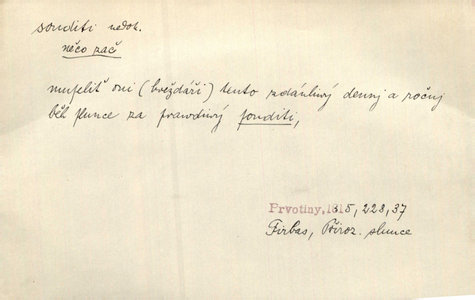 souditi nedok.
něco zač
museliť oni (hvězdáři) tento zdánliwý dennj a ročnj
běh slunce za prawdiwý souditi,
Prvotiny, 1815, 228, 37
Firbas, Přiroz. slunce